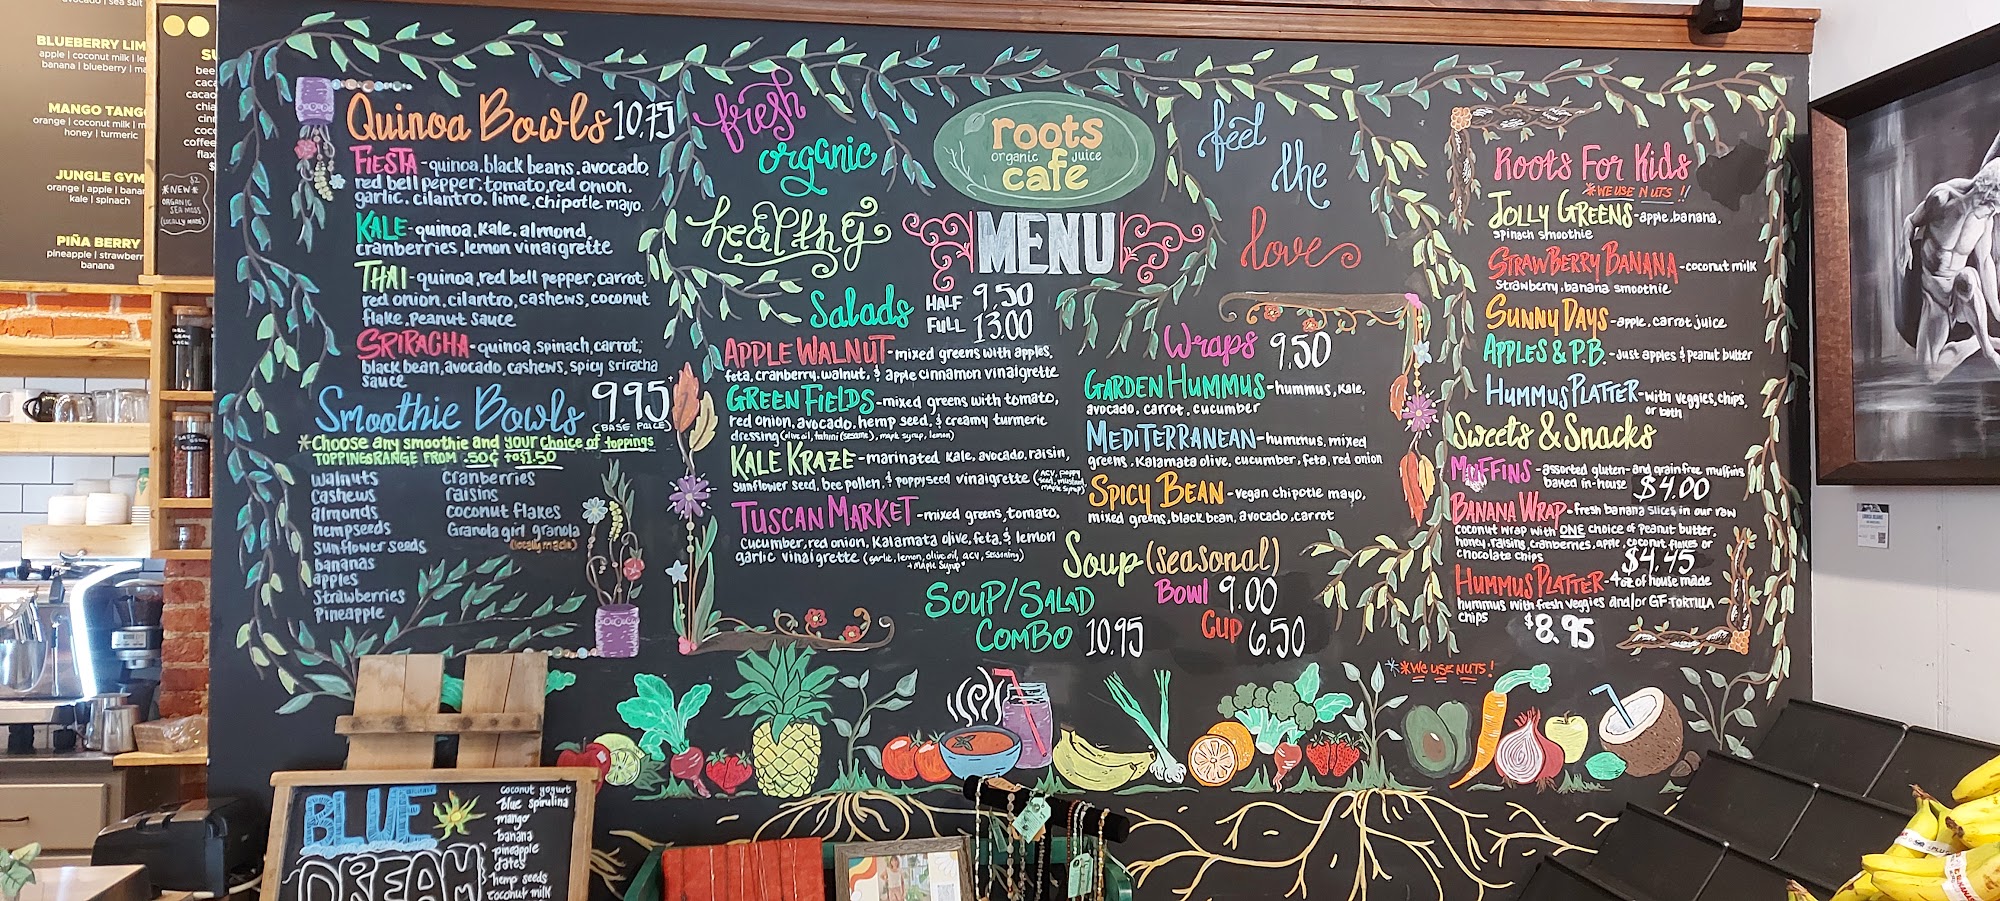 avocado | sea salt
BLUEBERRY LIM
apple | coconut milk | le
banana | blueberry | ma
MANGO TANGO
orange | coconut milk | m
honey | turmeric
JUNGLE GYM
orange | apple | banan
kale | spinach
PIÑA BERRY
pineapple | strawberry
banana
SU
bee
caca
cacao
chia
cinn
coco
coffee
flax
$2
*NEW*
ORGANIC
SEA MOSS
(LOCALLY MADE)
Quinoa Bowls 10.75
FIESTA-quinoa, black beans, avocado,
red bell pepper, tomato, red onion,
garlic, cilantro, lime, chipotle mayo.
KALE-quinoa, kale, almond,
cranberries, lemon vinaigrette
THAI-quinoa, red bell pepper, carrot,
red onion, cilantro, cashews, coconut
flake, peanut sauce
SRIRACHA-quinoa, spinach, carrot,
black bean, avocado, cashews, spicy sriracha
sauce
Smoothie Bowls 9.95+
(BASE PRICE)
*Choose any smoothie and your choice of toppings
TOPPINGS RANGE FROM .50¢ TO $1.50
walnuts
cashews
almonds
hempseeds
sunflower seeds
bananas
apples
strawberries
pineapple
cranberries
raisins
coconut flakes
Granola girl granola
(locally made)
fresh
organic
healthy
roots
organic juice
cafe
MENU
feel
the
love
Salads HALF 9.50
FULL 13.00
APPLE WALNUT-mixed greens with apples,
feta, cranberry, walnut, & apple cinnamon vinaigrette
GREEN FIELDS-mixed greens with tomato,
red onion, avocado, hemp seed, & creamy turmeric
dressing (olive oil, tahini (sesame), maple syrup, lemon)
KALE KRAZE-marinated kale, avocado, raisin,
sunflower seed, bee pollen, & poppyseed vinaigrette (ACV, poppy
seed, mustard,
maple syrup)
TUSCAN MARKET-mixed greens, tomato,
cucumber, red onion, kalamata olive, feta, & lemon
garlic vinaigrette (garlic, lemon, olive oil, acv, seasoning)
+ maple syrup*
Wraps 9.50
GARDEN HUMMUS-hummus, kale,
avocado, carrot, cucumber
MEDITERRANEAN-hummus, mixed
greens, kalamata olive, cucumber, feta, red onion
SPICY BEAN-vegan chipotle mayo,
mixed greens, black bean, avocado, carrot
Soup (seasonal)
Bowl 9.00
Cup 6.50
SOUP/SALAD
COMBO 10.95
Roots For Kids
*WE USE NUTS!!
JOLLY GREENS-apple, banana,
spinach smoothie
STRAWBERRY BANANA-coconut milk
strawberry, banana smoothie
SUNNY DAYS-apple, carrot juice
APPLES & P.B.-Just apples & peanut butter
HUMMUS PLATTER-with veggies, chips,
or both
Sweets & Snacks
MUFFINS-assorted gluten- and grain free muffins
baked in-house $4.00
BANANA WRAP-fresh banana slices in our raw
coconut wrap with ONE choice of peanut butter,
honey, raisins, cranberries, apple, coconut flakes or
chocolate chips $4.45
HUMMUS PLATTER-4oz of house made
hummus with fresh veggies and/or GF TORTILLA
chips $8.95
**WE USE NUTS!
BLUE
DREAM
coconut yogurt
blue spirulina
mango
banana
pineapple
dates
hemp seeds
coconut milk